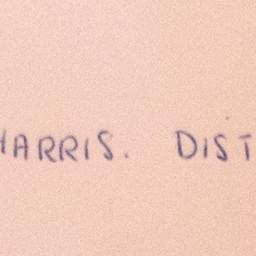 HARRIS. DIST